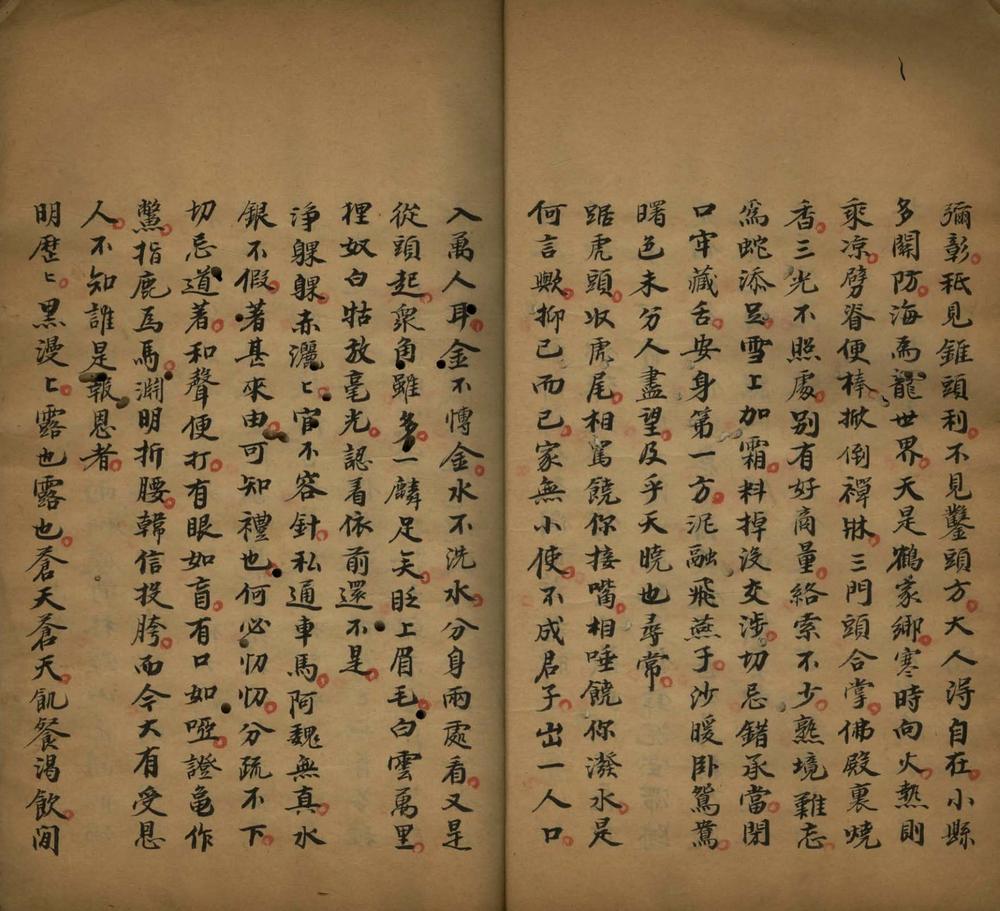 彌彰秖見錐頭利不見鑿頭方大人淂自在小縣
多關防海為龍世界天是鶴家鄉寒時向火熱則
乘凉劈脊便棒掀倒禪牀三門頭合掌佛殿裏燒
香三光不照處别有好商量絡索不少熟境難忘
爲蛇添足雪上加霜料掉沒交涉切忌錯承當閉
口牢藏舌安身第一方泥融飛燕子沙暖卧鴛鴦
曙色未分人盡望及乎天曉也尋常
踞虎頭収虎尾相罵饒你接嘴相唾饒你潑水是
何言歟抑已而已家無小使不成君子出一人口
入萬人耳金不愽金水不洗水分身兩處看又是
從頭起衆角雖多一麟足矣眨上眉毛白雲萬里
狸奴白牯放毫光認着依前還不是
淨躶躶赤灑〻官不容針私通車馬阿魏無真水
銀不假著甚來由可知禮也何必忉忉分疏不下
切忌道著和聲便打有眼如盲有口如啞證龜作
鱉指鹿爲馬淵明折腰韓信投胯而今大有受恩
人不知誰是報恩者
明歴〻黑漫〻露也露也蒼天蒼天飢餐渴飲閒